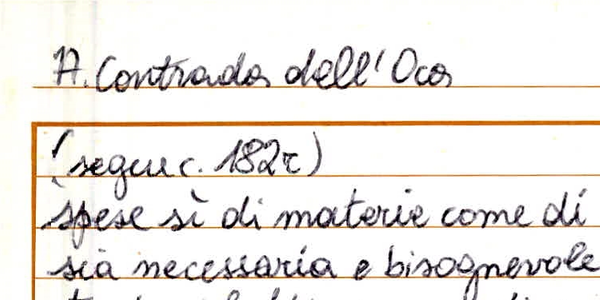 A. Contrada dell'Oca
(segue c. 182r)
spese sì di materie come di
sia necessaria e bisognevole